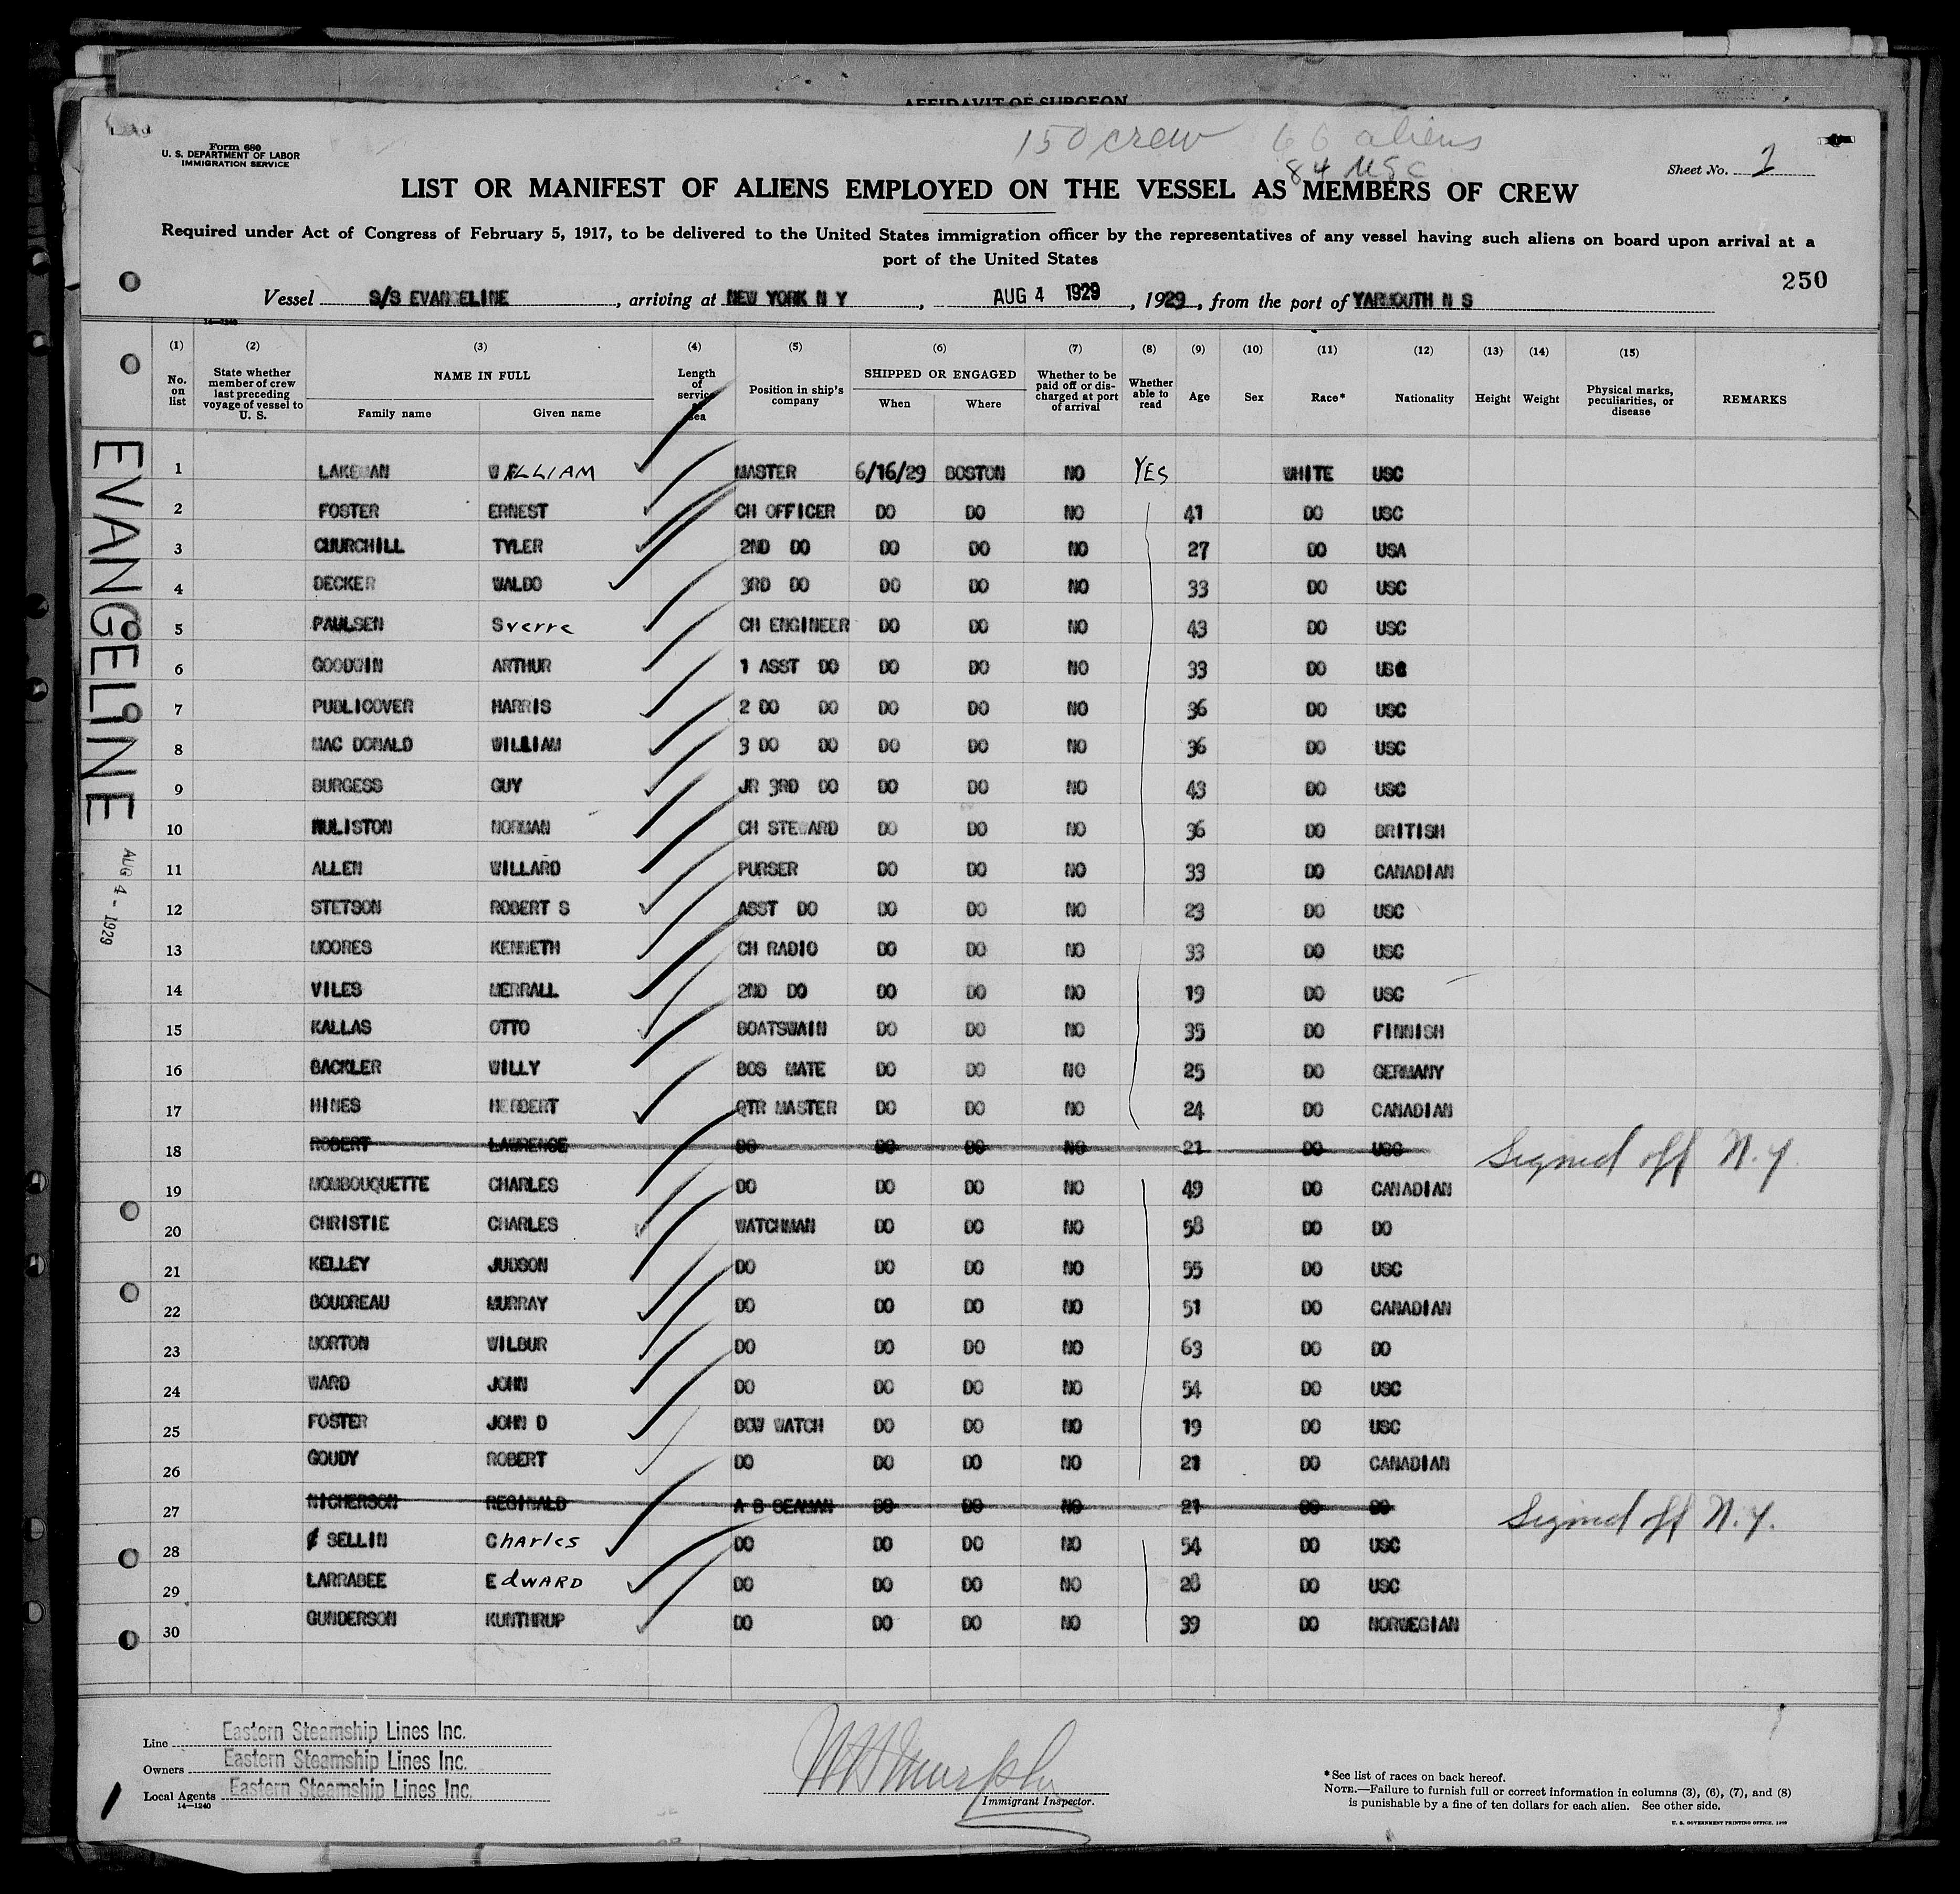 AFFIDAVIT OF SURGEON
150 crew 66 aliens
84 USC
Form 680
U. S. DEPARTMENT OF LABOR
IMMIGRATION SERVICE
Sheet No. 1
LIST OR MANIFEST OF ALIENS EMPLOYED ON THE VESSEL AS MEMBERS OF CREW
Required under Act of Congress of February 5, 1917, to be delivered to the United States immigration officer by the representatives of any vessel having such aliens on board upon arrival at a
port of the United States
250
Vessel S/S EVANGELINE, arriving at NEW YORK N Y, AUG 4 1929, 1929, from the port of YARMOUTH N S
14—1240
(1) (2) (3) (4) (5) (6) (7) (8) (9) (10) (11) (12) (13) (14) (15)
No. on list State whether member of crew last preceding voyage of vessel to U. S. NAME IN FULL Family name Given name Length of service at sea Position in ship's company SHIPPED OR ENGAGED When Where Whether to be paid off or discharged at port of arrival Whether able to read Age Sex Race* Nationality Height Weight Physical marks, peculiarities, or disease REMARKS
1 LAKEMAN WILLIAM MASTER 6/16/29 BOSTON NO YES WHITE USC
2 FOSTER ERNEST CH OFFICER DO DO NO 41 DO USC
3 CHURCHILL TYLER 2ND DO DO DO NO 27 DO USA
4 DECKER WALDO 3RD DO DO DO NO 33 DO USC
5 PAULSEN Sverre CH ENGINEER DO DO NO 43 DO USC
6 GOODWIN ARTHUR 1 ASST DO DO DO NO 33 DO USC
7 PUBLICOVER HARRIS 2 DO DO DO DO NO 36 DO USC
8 MAC DONALD WILLIAM 3 DO DO DO DO NO 36 DO USC
9 BURGESS GUY JR 3RD DO DO DO NO 43 DO USC
10 HULISTON NORMAN CH STEWARD DO DO NO 36 DO BRITISH
11 ALLEN WILLARD PURSER DO DO NO 33 DO CANADIAN
12 STETSON ROBERT S ASST DO DO DO NO 23 DO USC
13 MOORES KENNETH CH RADIO DO DO NO 33 DO USC
14 VILES MERRALL 2ND DO DO DO NO 19 DO USC
15 KALLAS OTTO BOATSWAIN DO DO NO 35 DO FINNISH
16 BACKLER WILLY BOS MATE DO DO NO 25 DO GERMANY
17 HINES HERBERT QTR MASTER DO DO NO 24 DO CANADIAN
18 ROBERT LAWRENCE DO DO DO NO 21 DO USC Signed off N.Y
19 MOMBOUQUETTE CHARLES DO DO DO NO 49 DO CANADIAN
20 CHRISTIE CHARLES WATCHMAN DO DO NO 58 DO DO
21 KELLEY JUDSON DO DO DO NO 55 DO USC
22 BOUDREAU MURRAY DO DO DO NO 51 DO CANADIAN
23 MORTON WILBUR DO DO DO NO 63 DO DO
24 WARD JOHN DO DO DO NO 54 DO USC
25 FOSTER JOHN D BOW WATCH DO DO NO 19 DO USC
26 GOUDY ROBERT DO DO DO NO 21 DO CANADIAN
27 NICHERSON REGINALD A B SEAMAN DO DO NO 21 DO DO Signed off N.Y.
28 SELLIN Charles DO DO DO NO 54 DO USC
29 LARRABEE EdWARD DO DO DO NO 28 DO USC
30 GUNDERSON KUNTHRUP DO DO DO NO 39 DO NORWEGIAN
EVANGELINE
AUG 4 - 1929
Line Eastern Steamship Lines Inc.
Owners Eastern Steamship Lines Inc.
Local Agents Eastern Steamship Lines Inc.
14—1240
Murphy
Immigrant Inspector.
*See list of races on back hereof.
NOTE.—Failure to furnish full or correct information in columns (3), (6), (7), and (8)
is punishable by a fine of ten dollars for each alien. See other side.
U. S. GOVERNMENT PRINTING OFFICE, 1929